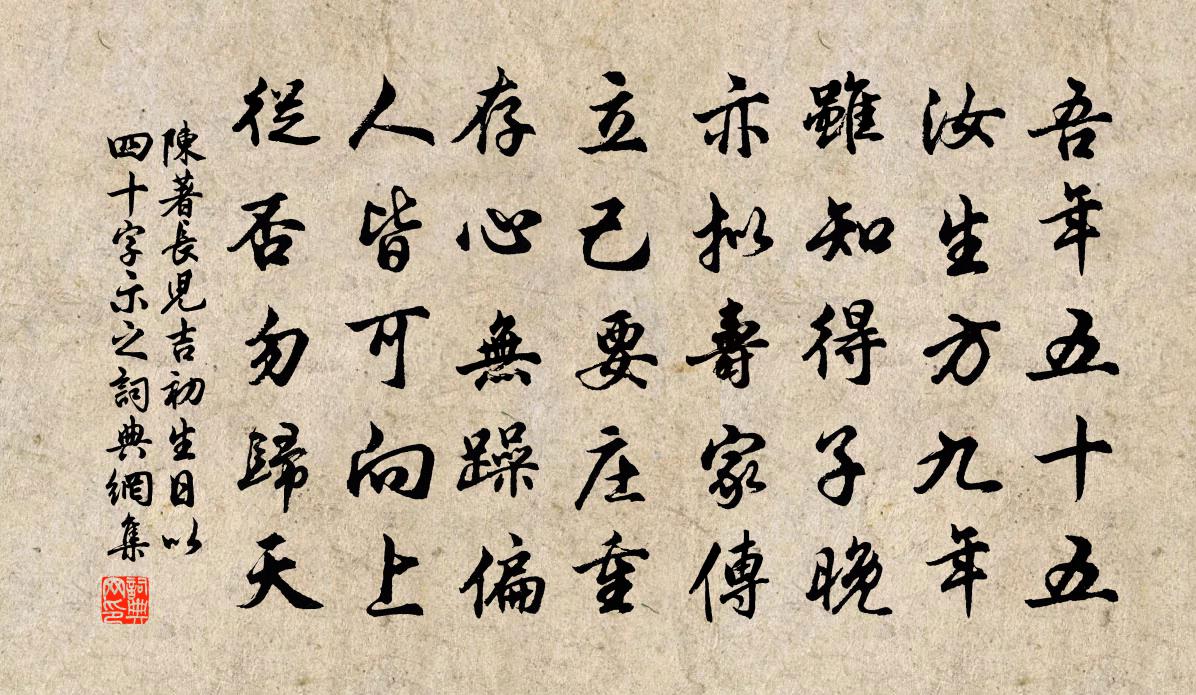 吾年五十五
汝生方九年
雖知得子晚
亦拟壽家傳
立己要庄重
存心無躁偏
人皆可向上
從否勿歸天
陳著長兒吉初生日以
四十字示之詞典網集
詞典
网印